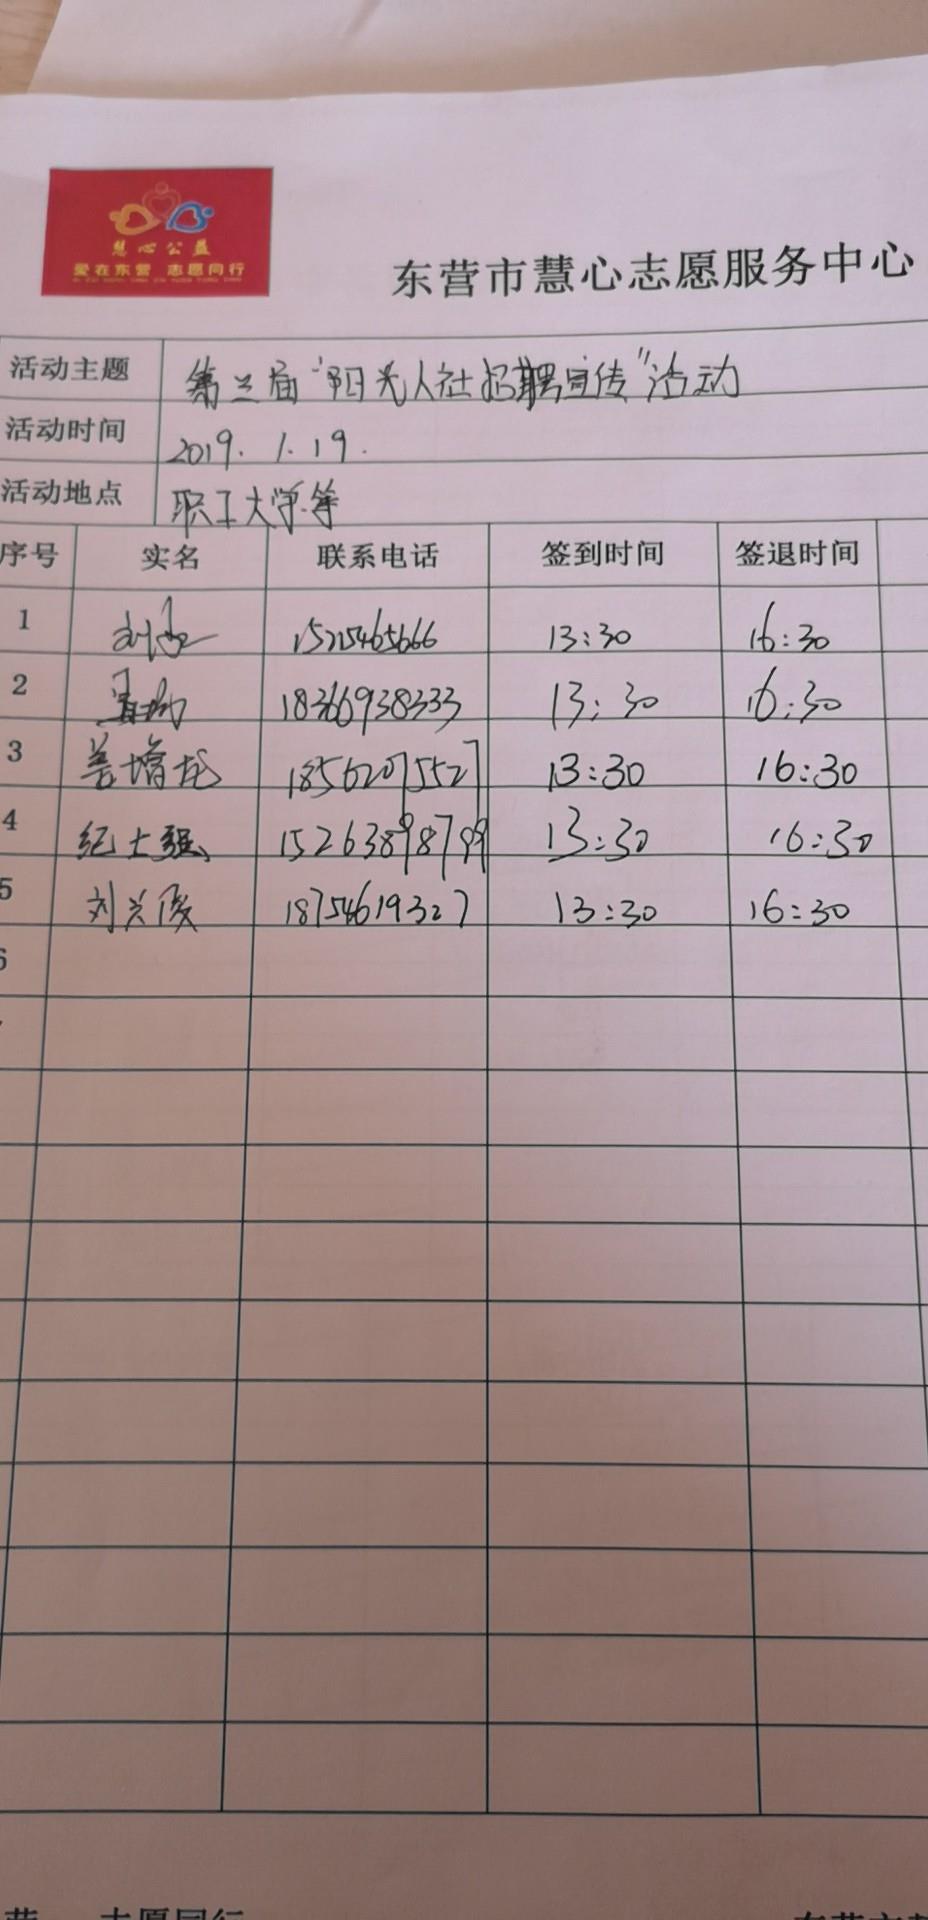 慧心公益
爱在东营 志愿同行
东营市慧心志愿服务中心
活动主题 第三届“阳光人社招聘宣传”活动
活动时间 2019.1.19.
活动地点 职工大学等
序号 实名 联系电话 签到时间 签退时间
1 1525465666 13:30 16:30
2 18366938333 13:30 16:30
3 姜增龙 18562075527 13:30 16:30
4 纪士强 15263898799 13:30 16:30
5 刘兴俊 18754619327 13:30 16:30
6
志愿同行